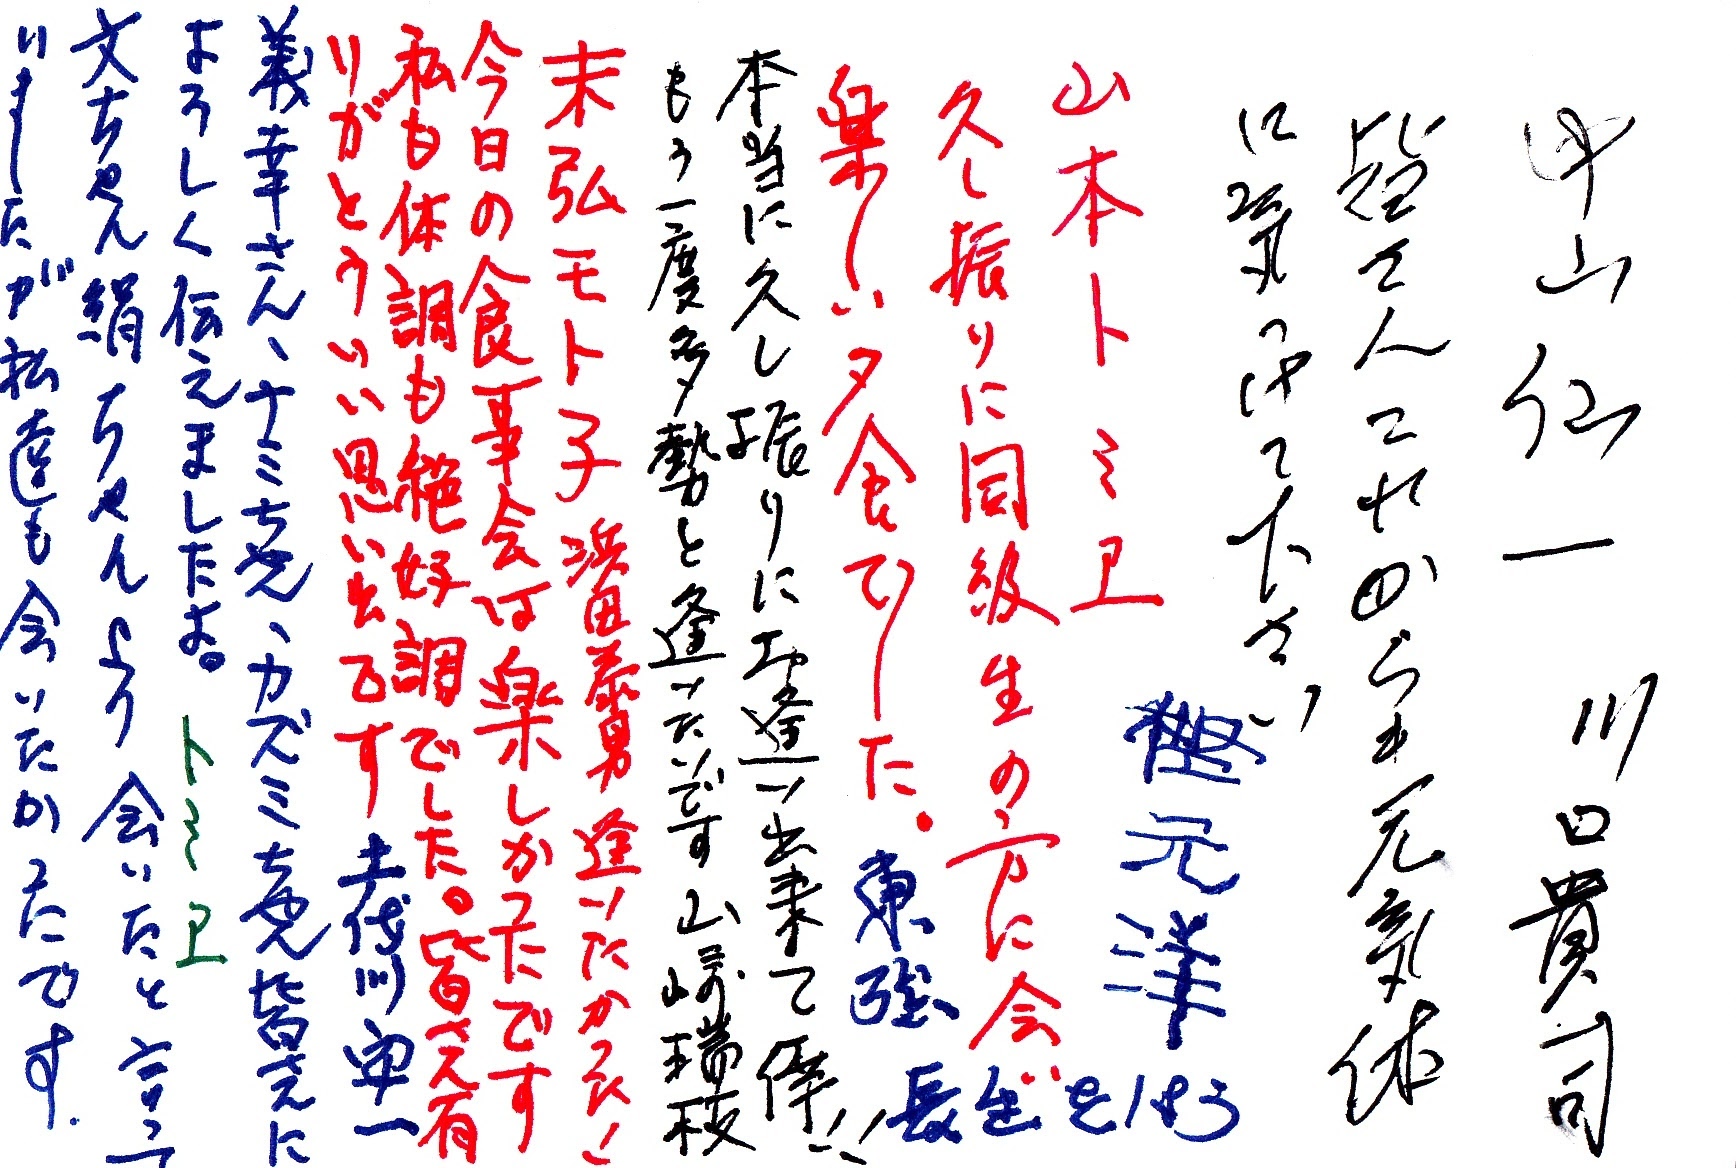 中山仙一 川口貴司
皆さんこれからも元気 体
に気をつけて下さい
樫元洋
山本トミヱ
久し振りに同級生の方に会
楽しい夕食でした。
東 強
長生きをしよう
本当に久し振りにお逢い出来て 倖!!
もう一度多勢と逢いたいです 山崎瑞枝
末弘モト子 濵田泰男 逢いたかった!
今日の食事会は楽しかったです
私も体調も絶好調でした。皆さん有
りがとういい思い出です 土伐川 寅一
義幸さん、ナミちゃん、カズミちゃん皆さんに
よろしく伝えましたよ。 トミヱ
文ちゃん絹ちゃんより会いたと言って
いましたが私達も会いたかたです.